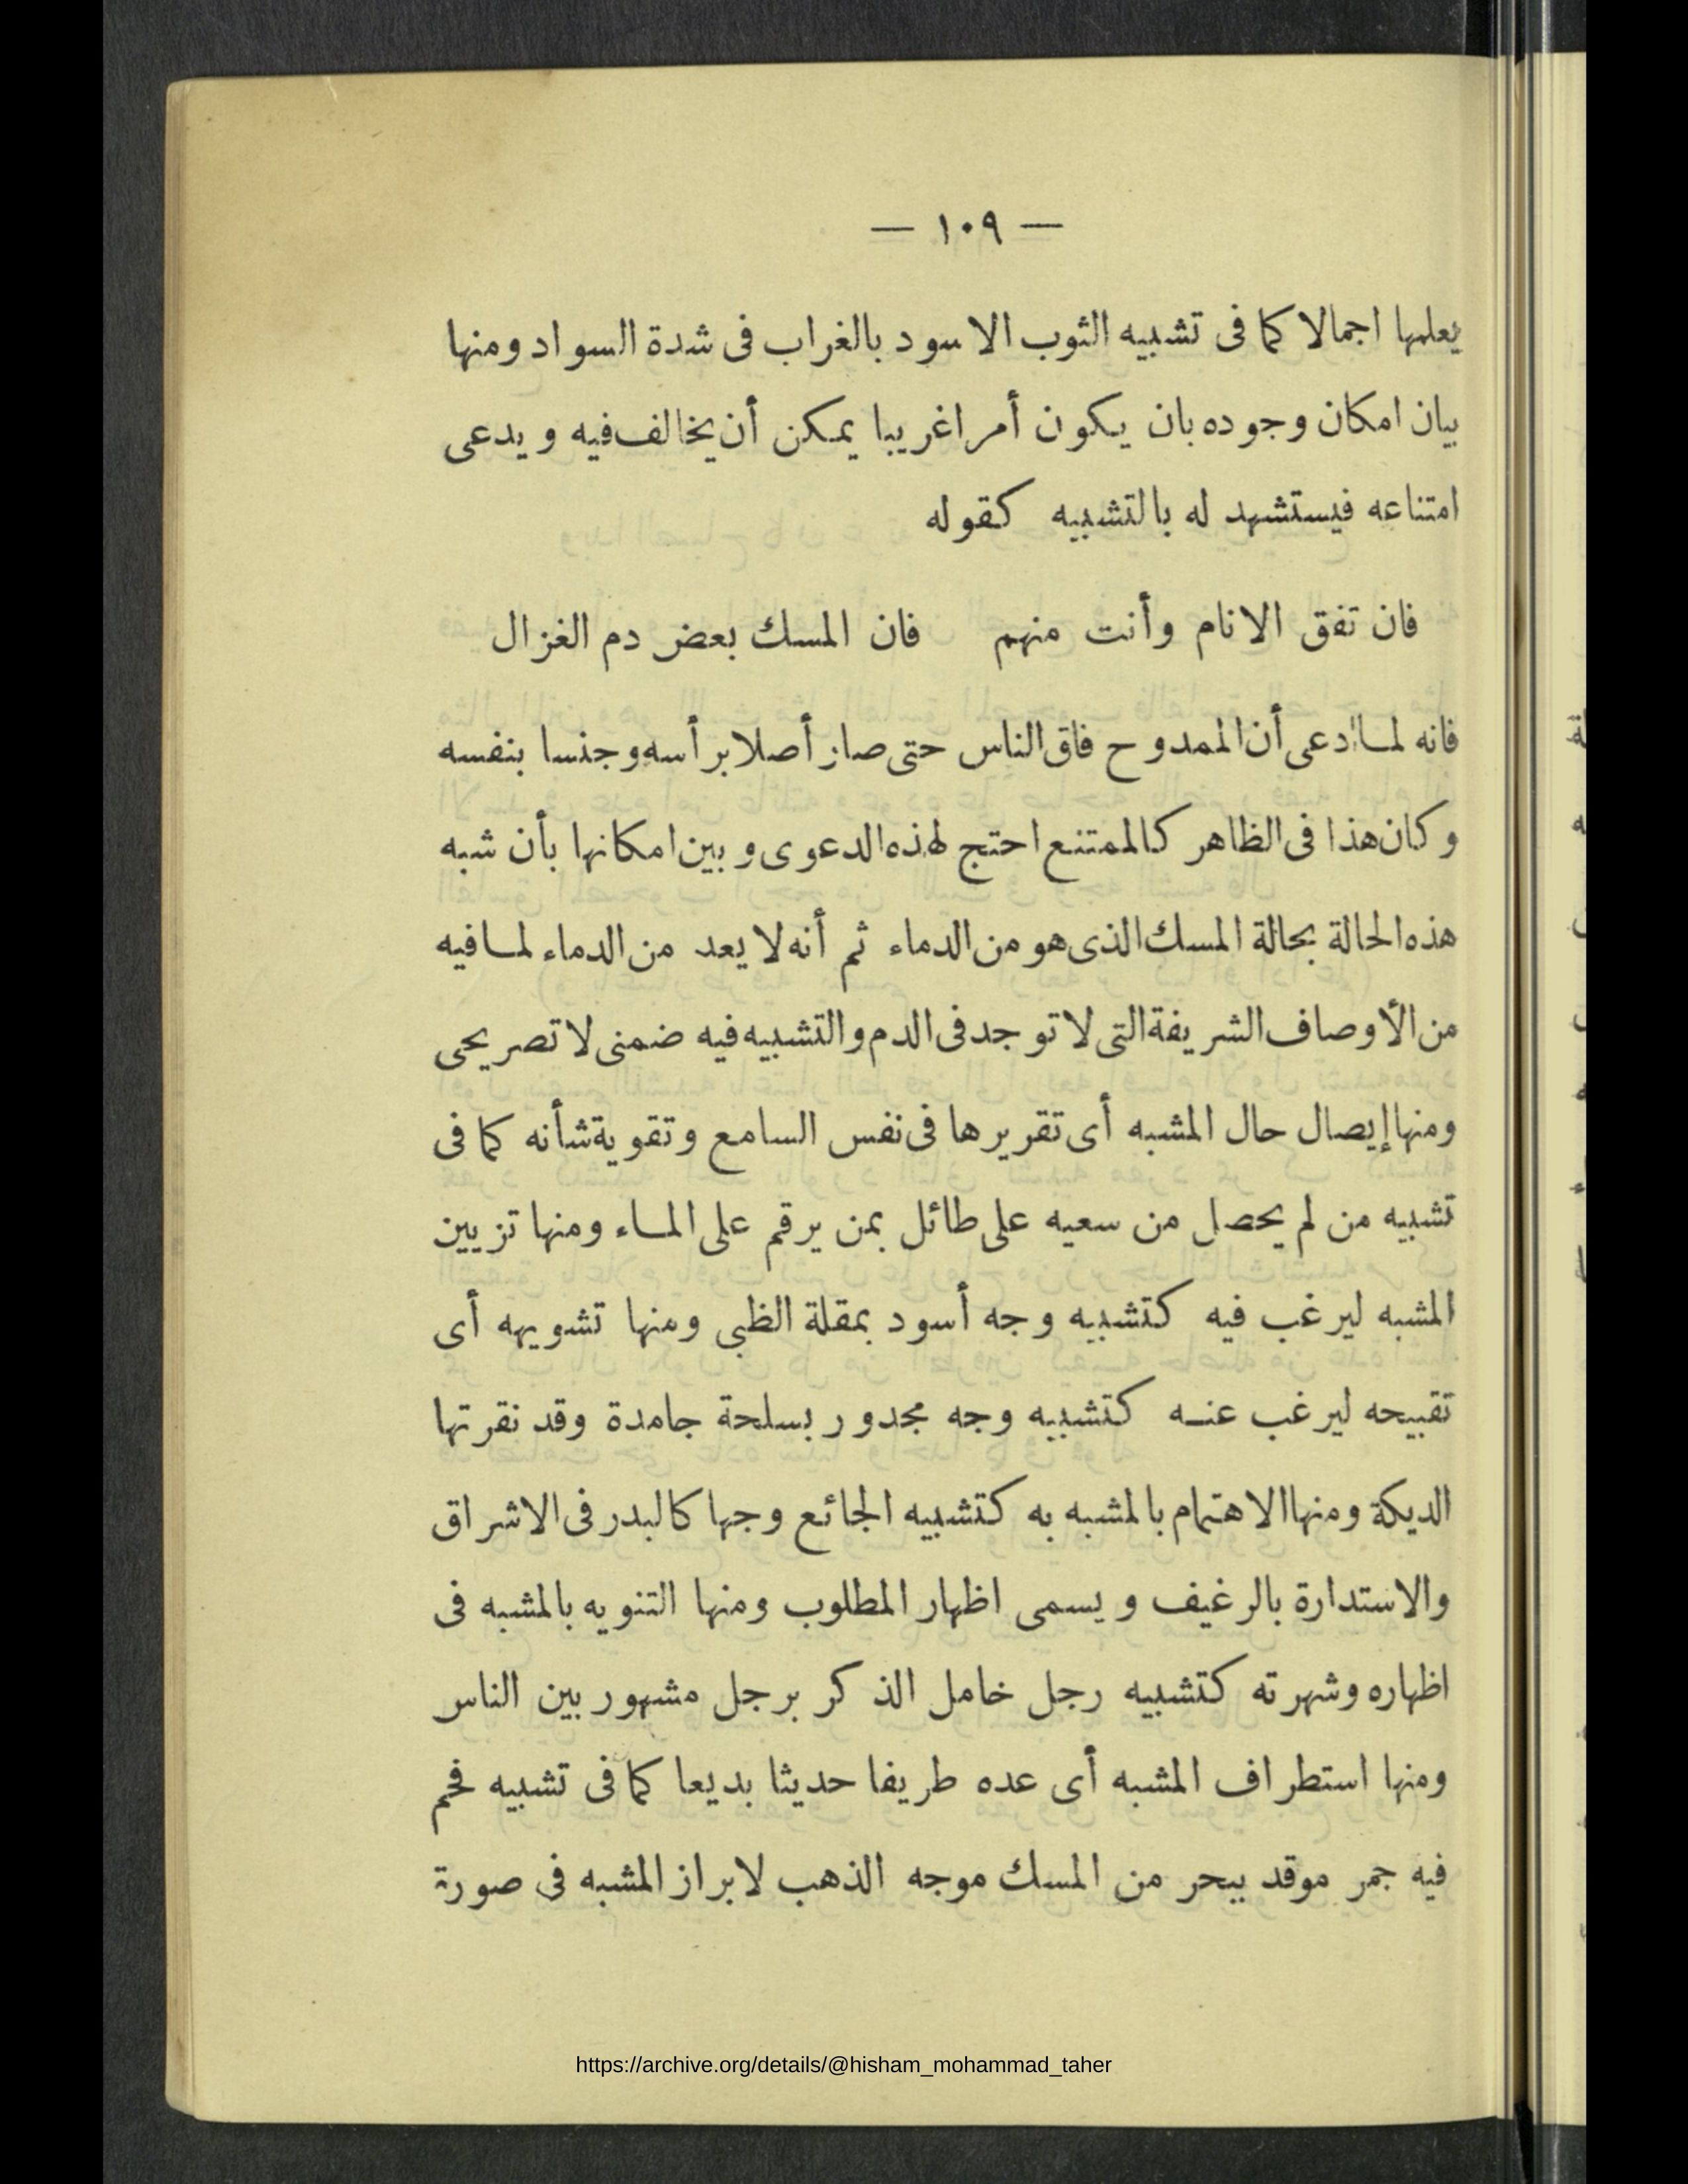 — ١٠٩ —
يعلمها اجمالا كما فى تشبيه الثوب الاسود بالغراب فى شدة السواد ومنها
بيان امكان وجوده بان يكون أمرا غريبا يمكن أن يخالف فيه ويدعى
امتناعه فيستشهد له بالتشبيه كقوله
فان تفق الانام وأنت منهم فان المسك بعض دم الغزال
فانه لما ادعى أن الممدوح فاق الناس حتى صار أصلا برأسه وجنسا بنفسه
وكان هذا فى الظاهر كالممتنع احتج لهذه الدعوى وبين امكانها بأن شبه
هذه الحالة بحالة المسك الذى هو من الدماء ثم أنه لا يعد من الدماء لما فيه
من الأوصاف الشريفة التى لا توجد فى الدم والتشبيه فيه ضمنى لا تصريحى
ومنها إيصال حال المشبه أى تقريرها فى نفس السامع وتقوية شأنه كما فى
تشبيه من لم يحصل من سعيه على طائل بمن يرقم على الماء ومنها تزيين
المشبه ليرغب فيه كتشبيه وجه أسود بمقلة الظبى ومنها تشويهه أى
تقبيحه ليرغب عنه كتشبيه وجه مجدور بسلحة جامدة وقد نقرتها
الديكة ومنها الاهتمام بالمشبه به كتشبيه الجائع وجها كالبدر فى الاشراق
والاستدارة بالرغيف ويسمى اظهار المطلوب ومنها التنويه بالمشبه فى
اظهاره وشهرته كتشبيه رجل خامل الذكر برجل مشهور بين الناس
ومنها استطراف المشبه أى عده طريفا حديثا بديعا كما فى تشبيه فحم
فيه جمر موقد ببحر من المسك موجه الذهب لابراز المشبه فى صورة
https://archive.org/details/@hisham_mohammad_taher